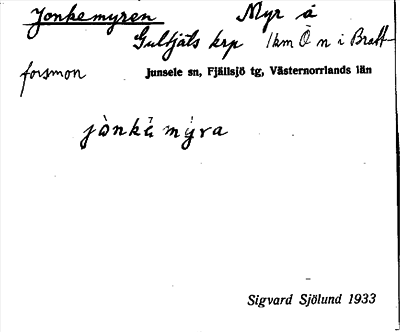 Jonkemyren Myr å
Gulsjåls krp 1km Ö n i Bratt-
forsmon Junsele sn, Fjällsjö tg, Västernorrlands län
jònkē mýra
Sigvard Sjölund 1933